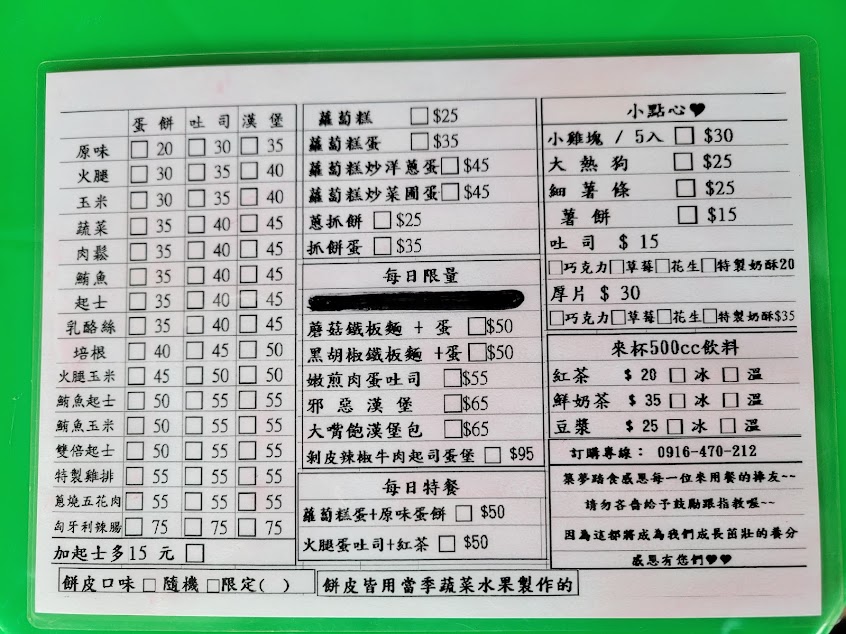 蛋餅 吐司 漢堡
原味 □ 20 □ 30 □ 35
火腿 □ 30 □ 35 □ 40
玉米 □ 30 □ 35 □ 40
蔬菜 □ 35 □ 40 □ 45
肉鬆 □ 35 □ 40 □ 45
鮪魚 □ 35 □ 40 □ 45
起士 □ 35 □ 40 □ 45
乳酪絲 □ 35 □ 40 □ 45
培根 □ 40 □ 45 □ 50
火腿玉米 □ 45 □ 50 □ 50
鮪魚起士 □ 50 □ 55 □ 55
鮪魚玉米 □ 50 □ 55 □ 55
雙倍起士 □ 50 □ 55 □ 55
特製雞排 □ 55 □ 55 □ 55
蔥燒五花肉 □ 55 □ 55 □ 55
匈牙利辣腸 □ 75 □ 75 □ 75
加起士多15 元 □
餅皮口味 □ 隨機 □限定( )
蘿蔔糕 □$25
蘿蔔糕蛋 □$35
蘿蔔糕炒洋蔥蛋□$45
蘿蔔糕炒菜圃蛋□$45
蔥抓餅 □$25
抓餅蛋 □$35
每日限量
蘑菇鐵板麵 + 蛋 □$50
黑胡椒鐵板麵 +蛋 □$50
嫩煎肉蛋吐司 □$55
邪惡漢堡 □$65
大嘴飽漢堡包 □$65
剝皮辣椒牛肉起司蛋堡 □ $95
每日特餐
蘿蔔糕蛋+原味蛋餅 □ $50
火腿蛋吐司+紅茶 □ $50
餅皆用當季蔬菜水果製作的
小點心♥
小雞塊 / 5入 □ $30
大熱狗 □ $25
細薯條 □ $25
薯餅 □ $15
吐司 $ 15
□巧克力□草莓□花生□特製奶酥20
厚片 $ 30
□巧克力□草莓□花生□特製奶酥$35
來杯500cc飲料
紅茶 $ 20 □ 冰 □ 溫
鮮奶茶 $ 35 □ 冰 □ 溫
豆漿 $ 25 □ 冰 □ 溫
訂購專線： 0916-470-212
築夢踏食感恩每一位來用餐的捧友~~
請勿吝嗇給予鼓勵跟指教喔~~
因為這都將成為我們成長茁壯的養分
感恩有您們♥♥